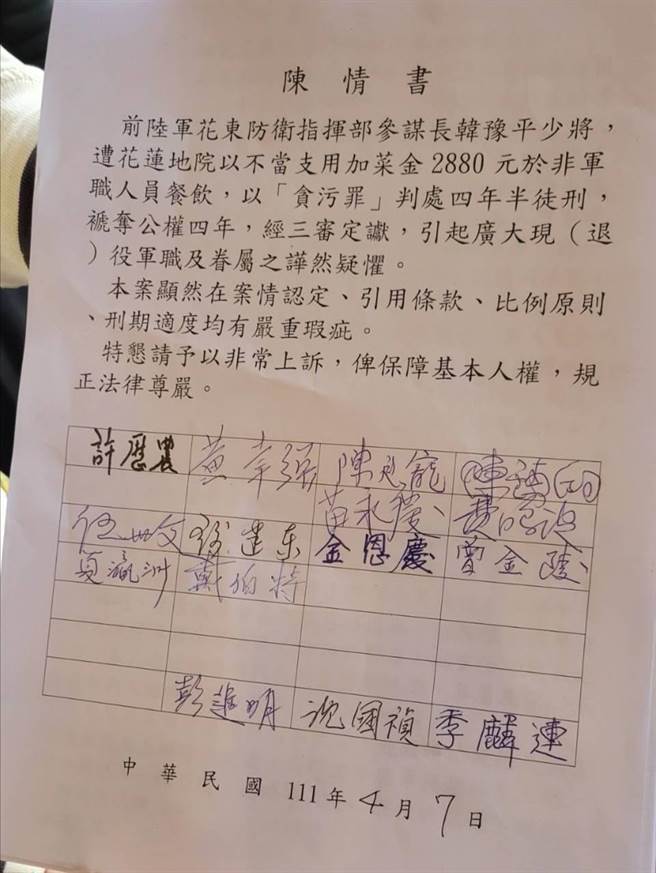 陳情書
前陸軍花東防衛指揮部參謀長韓豫平少將，
遭花蓮地院以不當支用加菜金2880元於非軍
職人員餐飲，以「貪污罪」判處四年半徒刑，
褫奪公權四年，經三審定讞，引起廣大現（退
）役軍職及眷屬之譁然疑懼。
本案顯然在案情認定、引用條款、比例原則
、刑期適度均有嚴重瑕疵。
特懇請予以非常上訴，俾保障基本人權，規
正法律尊嚴。
許歷農 黃幸強
苗永慶
伍世文 金恩慶 曾金陵
夏瀛洲 戴伯特
彭進明 沈國禎 季麟連
中華民國111年4月7日